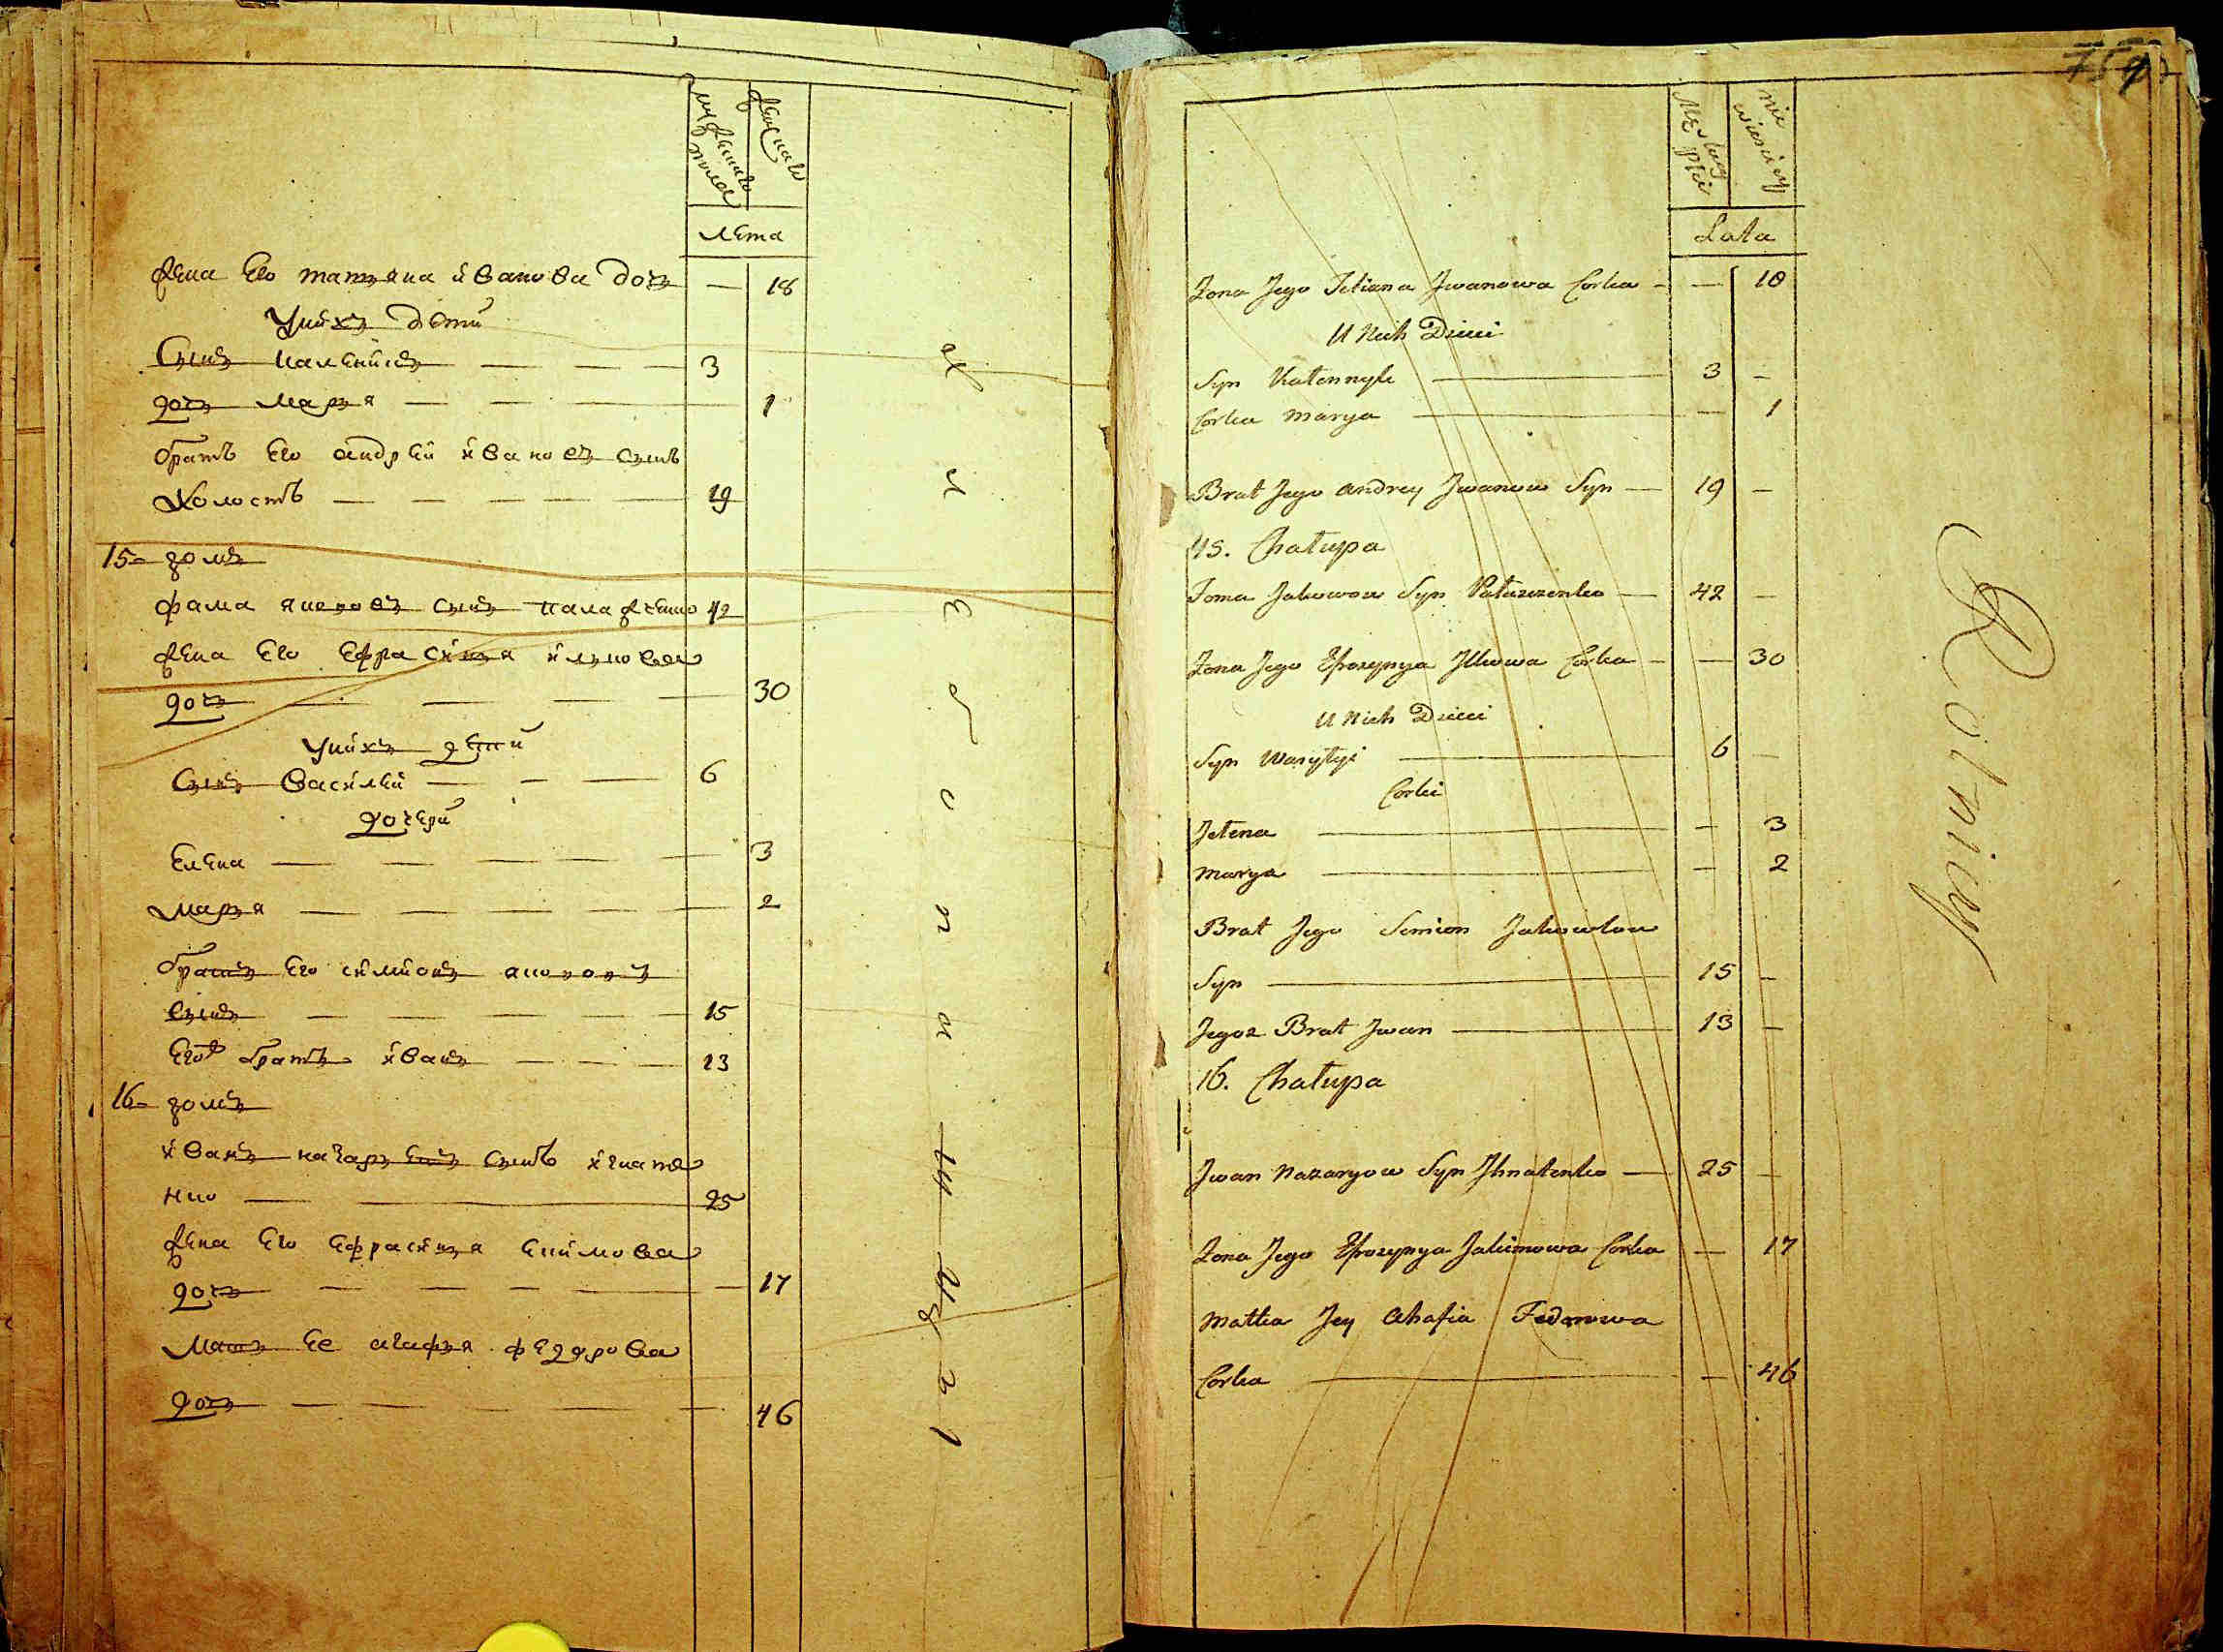 мужеска
пола
женска
лета
жена Его татьяна иванова дочь — 18
У них дети
Сынъ каленикъ — — — 3
дочь марья — — — 1
братъ его андрей ивановъ сынъ
холостъ — — — — 19
15- домъ
фама яковъ сынъ 42
жена Его Ефрасиня илькова
дочь — — — — 30
У них дети
Сынъ василей — — — 6
дочери
Елена — — — — — 3
марья — — — — — 2
братъ Его симионъ яковъ
сынъ — — — — — 15
Его братъ иванъ — — — 13
16- домъ
иванъ назарьевъ сынъ игнате
нко — — 25
жена Его Ефрасиня Екимова
дочь — — — — — 17
мать Ее агафья федорова
дочь — — — — — 46
Męskey
płci
nie
wiesciey
Lata
Żona Jego Tetiana Jwanowa Corka - — 18
U Nich Dzieci
Syn Kalennyk — 3 —
Corka Marya — — 1
Brat Jego Andrey Jwanow Syn — 19 —
15. Chałupa
Toma Jakowow Syn — 42 —
Żona Jego Efrozynya Jlkowa Corka - — 30
U Nich Dzieci
Syn Wasylyi — 6 —
Corki
Jełena — — 3
Marya — — 2
Brat Jego Semion Jakowlow
Syn — 15 —
Jegoz Brat Jwan — 13 —
16. Chałupa
Jwan Nazaryow Syn Jhnatenko — 25 —
Żona Jego Efrozynya Jakimowa Corka — 17
Matka Jey Ahafia Fedorowa
Corka — — 46
Rolniey